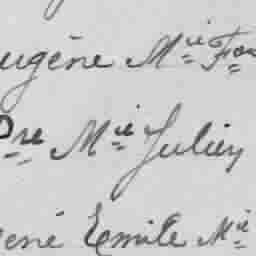 ugène Mie Fco
Dre Mie Julien
ené Emile Mie